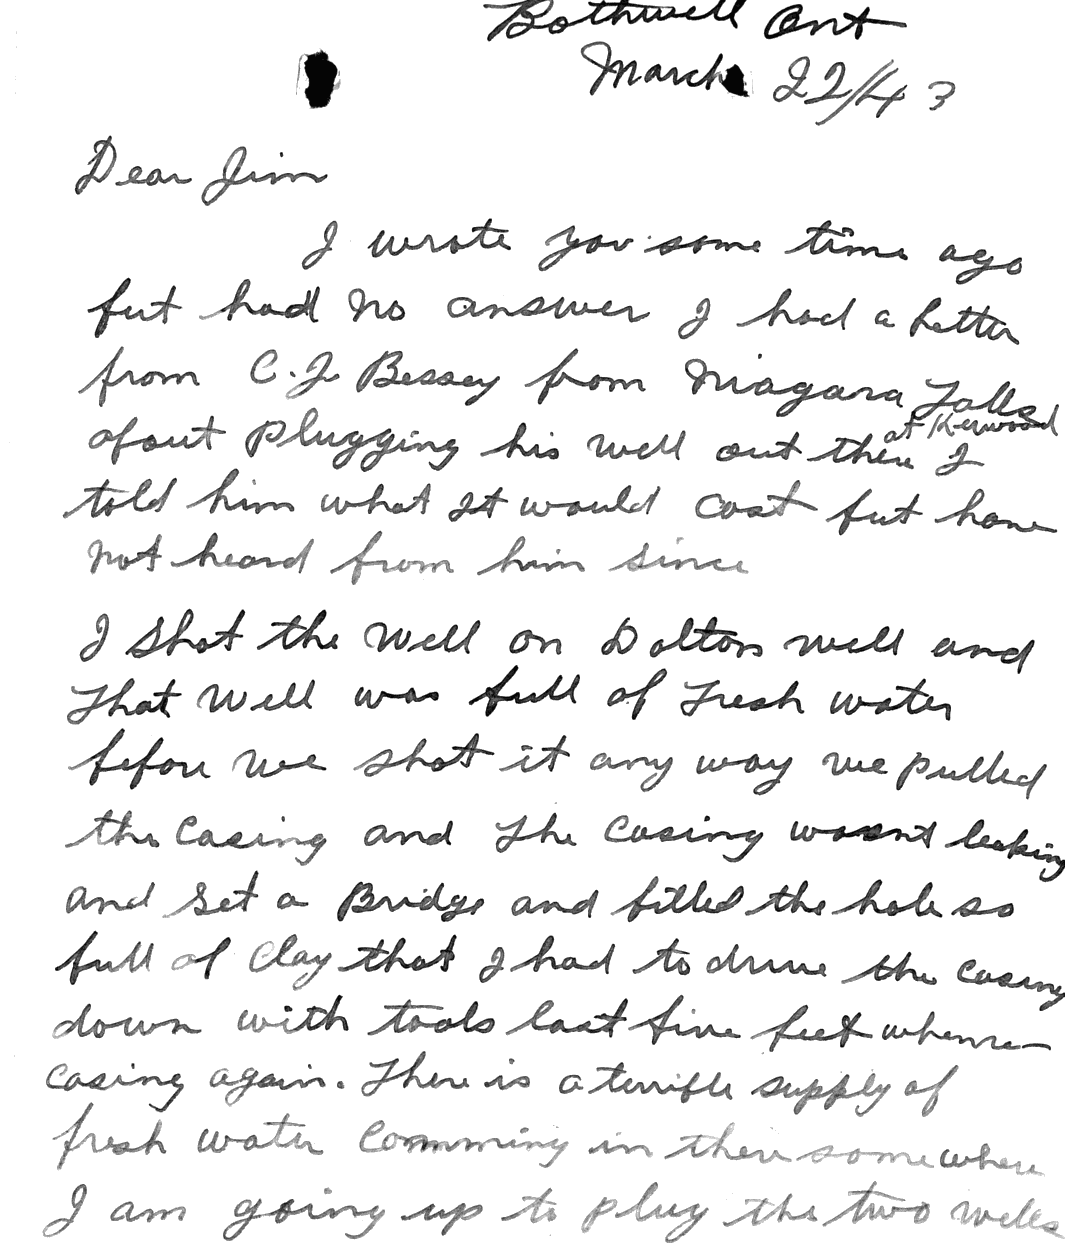 Bothwell Ont
March 22/43
Dear Jim
I wrote you some time ago
but had no answer I had a letter
from C. J. Bessey from Niagara Falls
at Kerwood
about plugging his well out there I
told him what It would cost but have
not heard from him since
I Shot the Well on Dalton well and
That Well was full of Fresh water
before we shot it any way we pulled
the Casing and The Casing wasnt leaking
and Set a Bridge and filled the hole so
full of Clay that I had to drive the casing
down with tools last five feet when
casing again. There is a terrible supply of
fresh water Comming in there somewhere
I am going up to plug the two wells